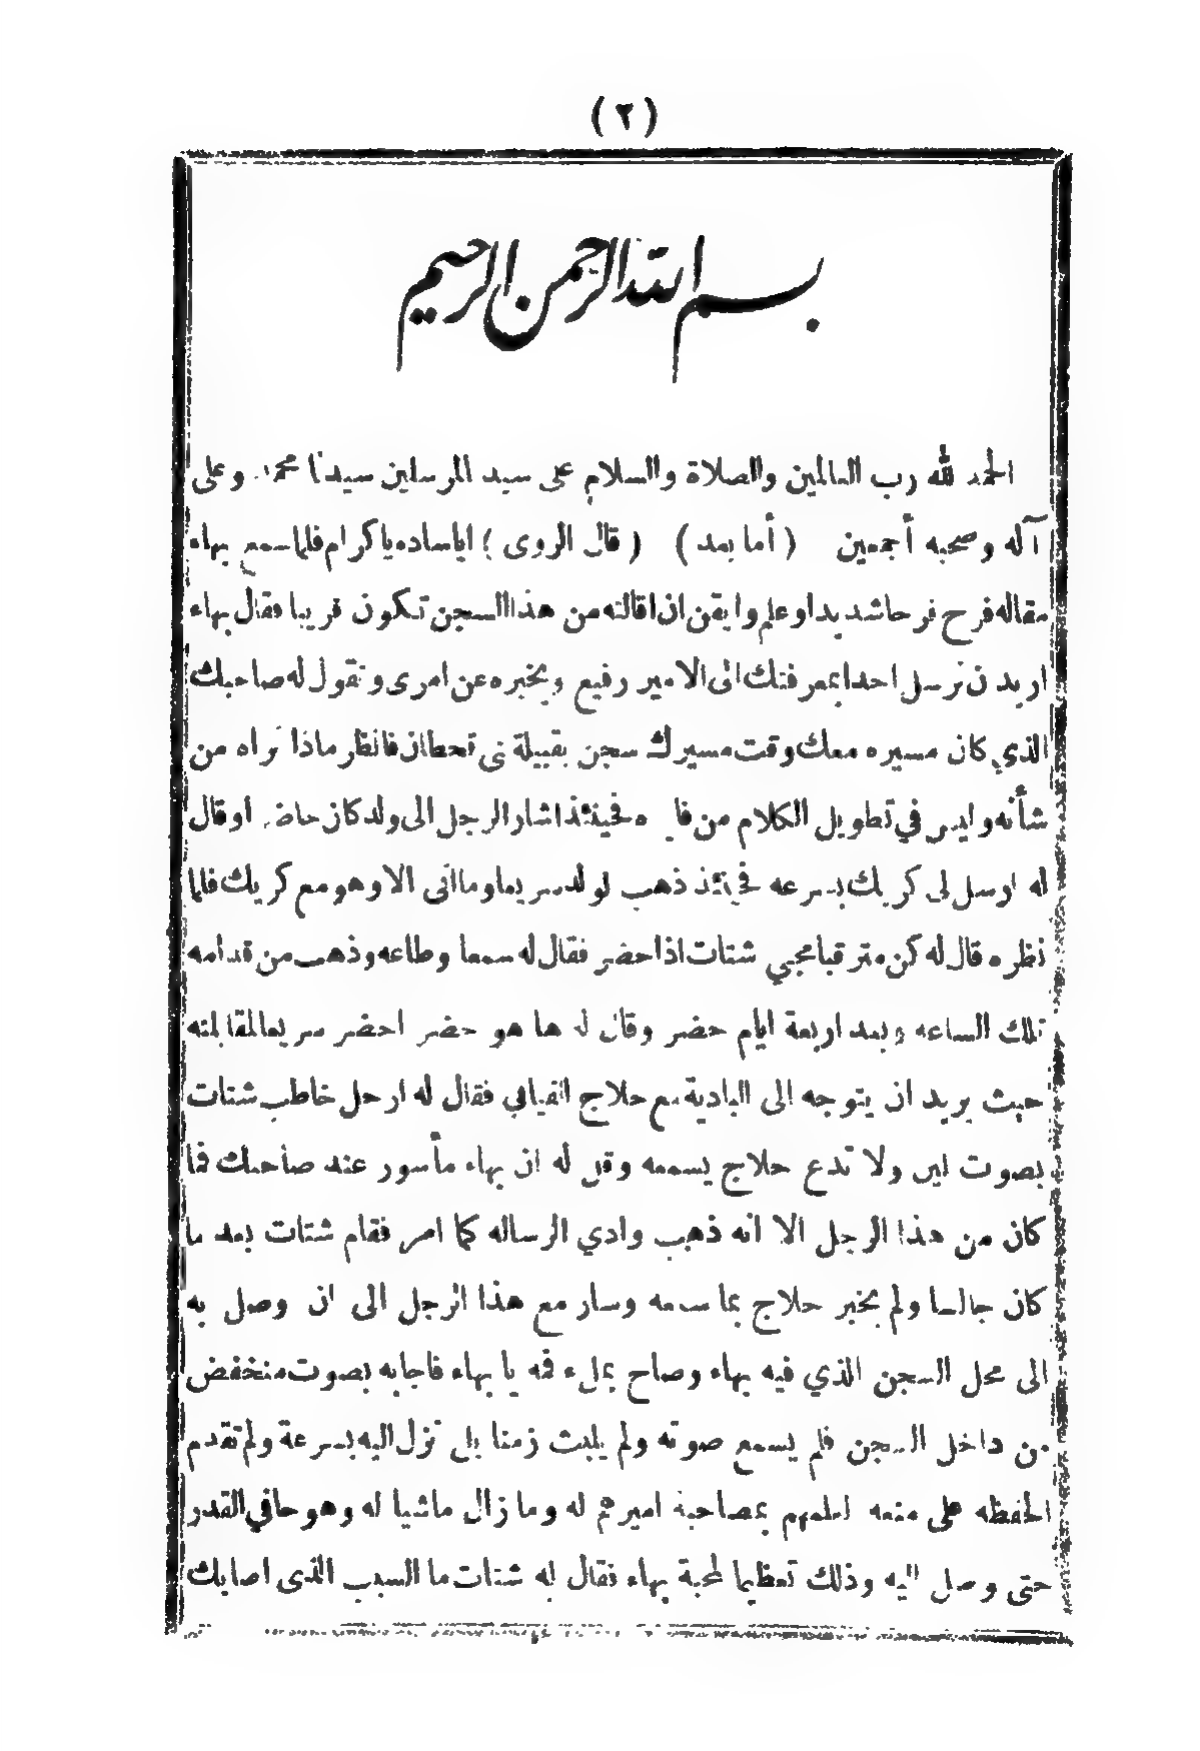 (٢)
بسم الله الرحمن الرحيم
الحمد لله رب العالمين والصلاة والسلام على سيد المرسلين سيدنا محمد وعلى
آله وصحبه أجمعين (أما بعد) (قال الروى) ياساده ياكرام فلما سمع بهاء
مقاله فرح فرحا شديدا وعلم وايقن ان اقالته من هذا السجن تكون قريبا فقال بهاء
اريد ن نرسل احدا بمعرفتك الى الامير رفيع ويخبره عن امرى ونقول له صاحبك
الذي كان مسيره معك وقت مسيرك سجن بقبيلة نى قحطان فانظر ماذا تراه من
شأنه وليس في تطويل الكلام من فا ه فحينئذ اشار الرجل الى ولد كان حاضر اوقال
له ارسل لى كريك بسرعه فحينئذ ذهب لولد سريعا وما اتى الا وهو مع كريك فلما
نظره قال له كن مترقبا مجيي شتات اذا حضر فقال له سمعا وطاعه وذهب من قدامه
تلك الساعه وبعد اربعة ايام حضر وقال له ها هو حضر احضر سريعا لمقابلته
حيث يريد ان يتوجه الى البادية مع حلاج القيافي فقال له ارحل خاطب شتات
بصوت لين ولا تدع حلاج يسمعه وقل له ان بهاء مأسور عند صاحبك فما
كان من هذا الرجل الا انه ذهب وادي الرساله كما امر فقام شتات بعد ما
كان جالسا ولم يخبر حلاج بما سمعه وسار مع هذا الرجل الى ان وصل به
الى محل السجن الذي فيه بهاء وصاح بملء فمه يا بهاء فاجابه بصوت منخفض
من داخل السجن فلم يسمع صوته ولم يلبث زمنا بل نزل اليه بسرعة ولم تقدم
الحفظه على منعه لعلمهم بمصاحبة اميرهم له وما زال ماشيا له وهو حافي القدر
حتى وصل اليه وذلك تعظيما لمحبة بهاء فقال له شتات ما السبب الذى اصابك